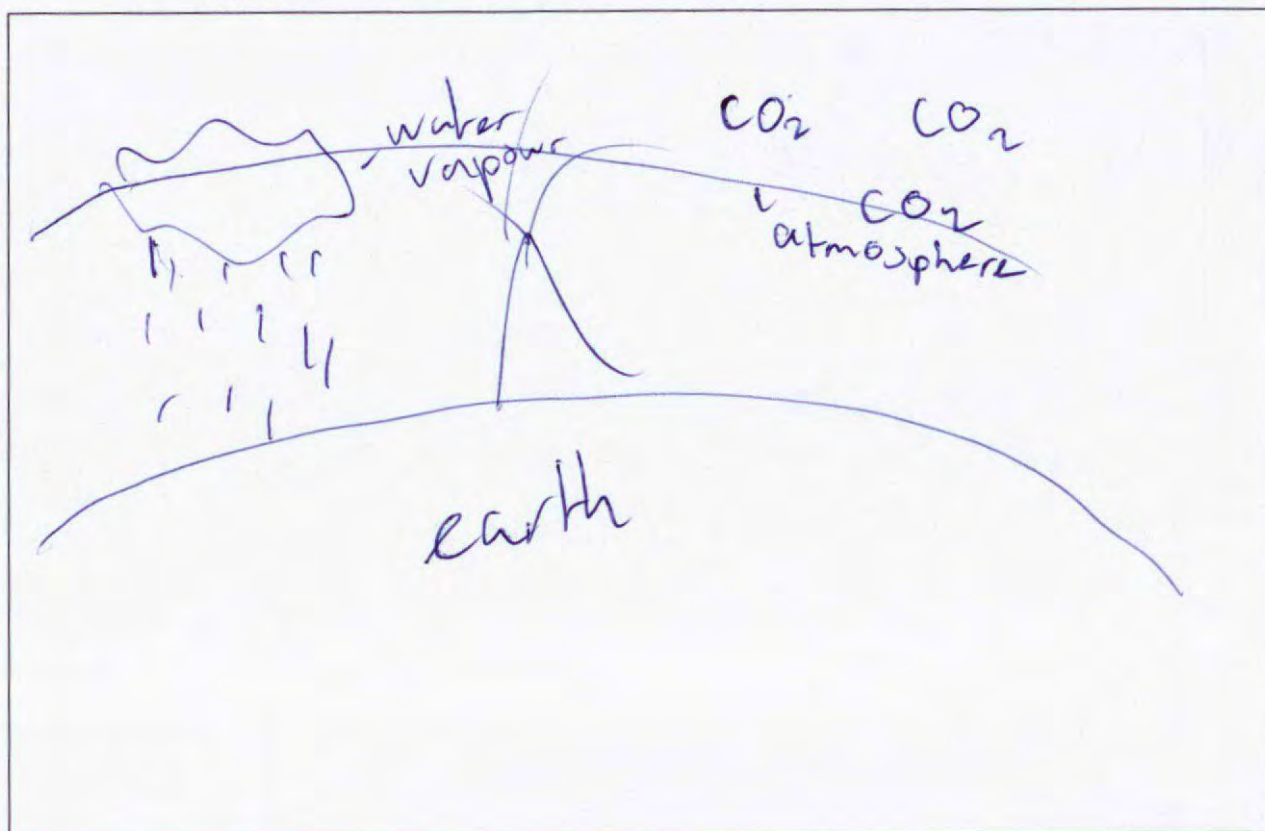 water
vapour
CO2 CO2
CO2
atmosphere
earth